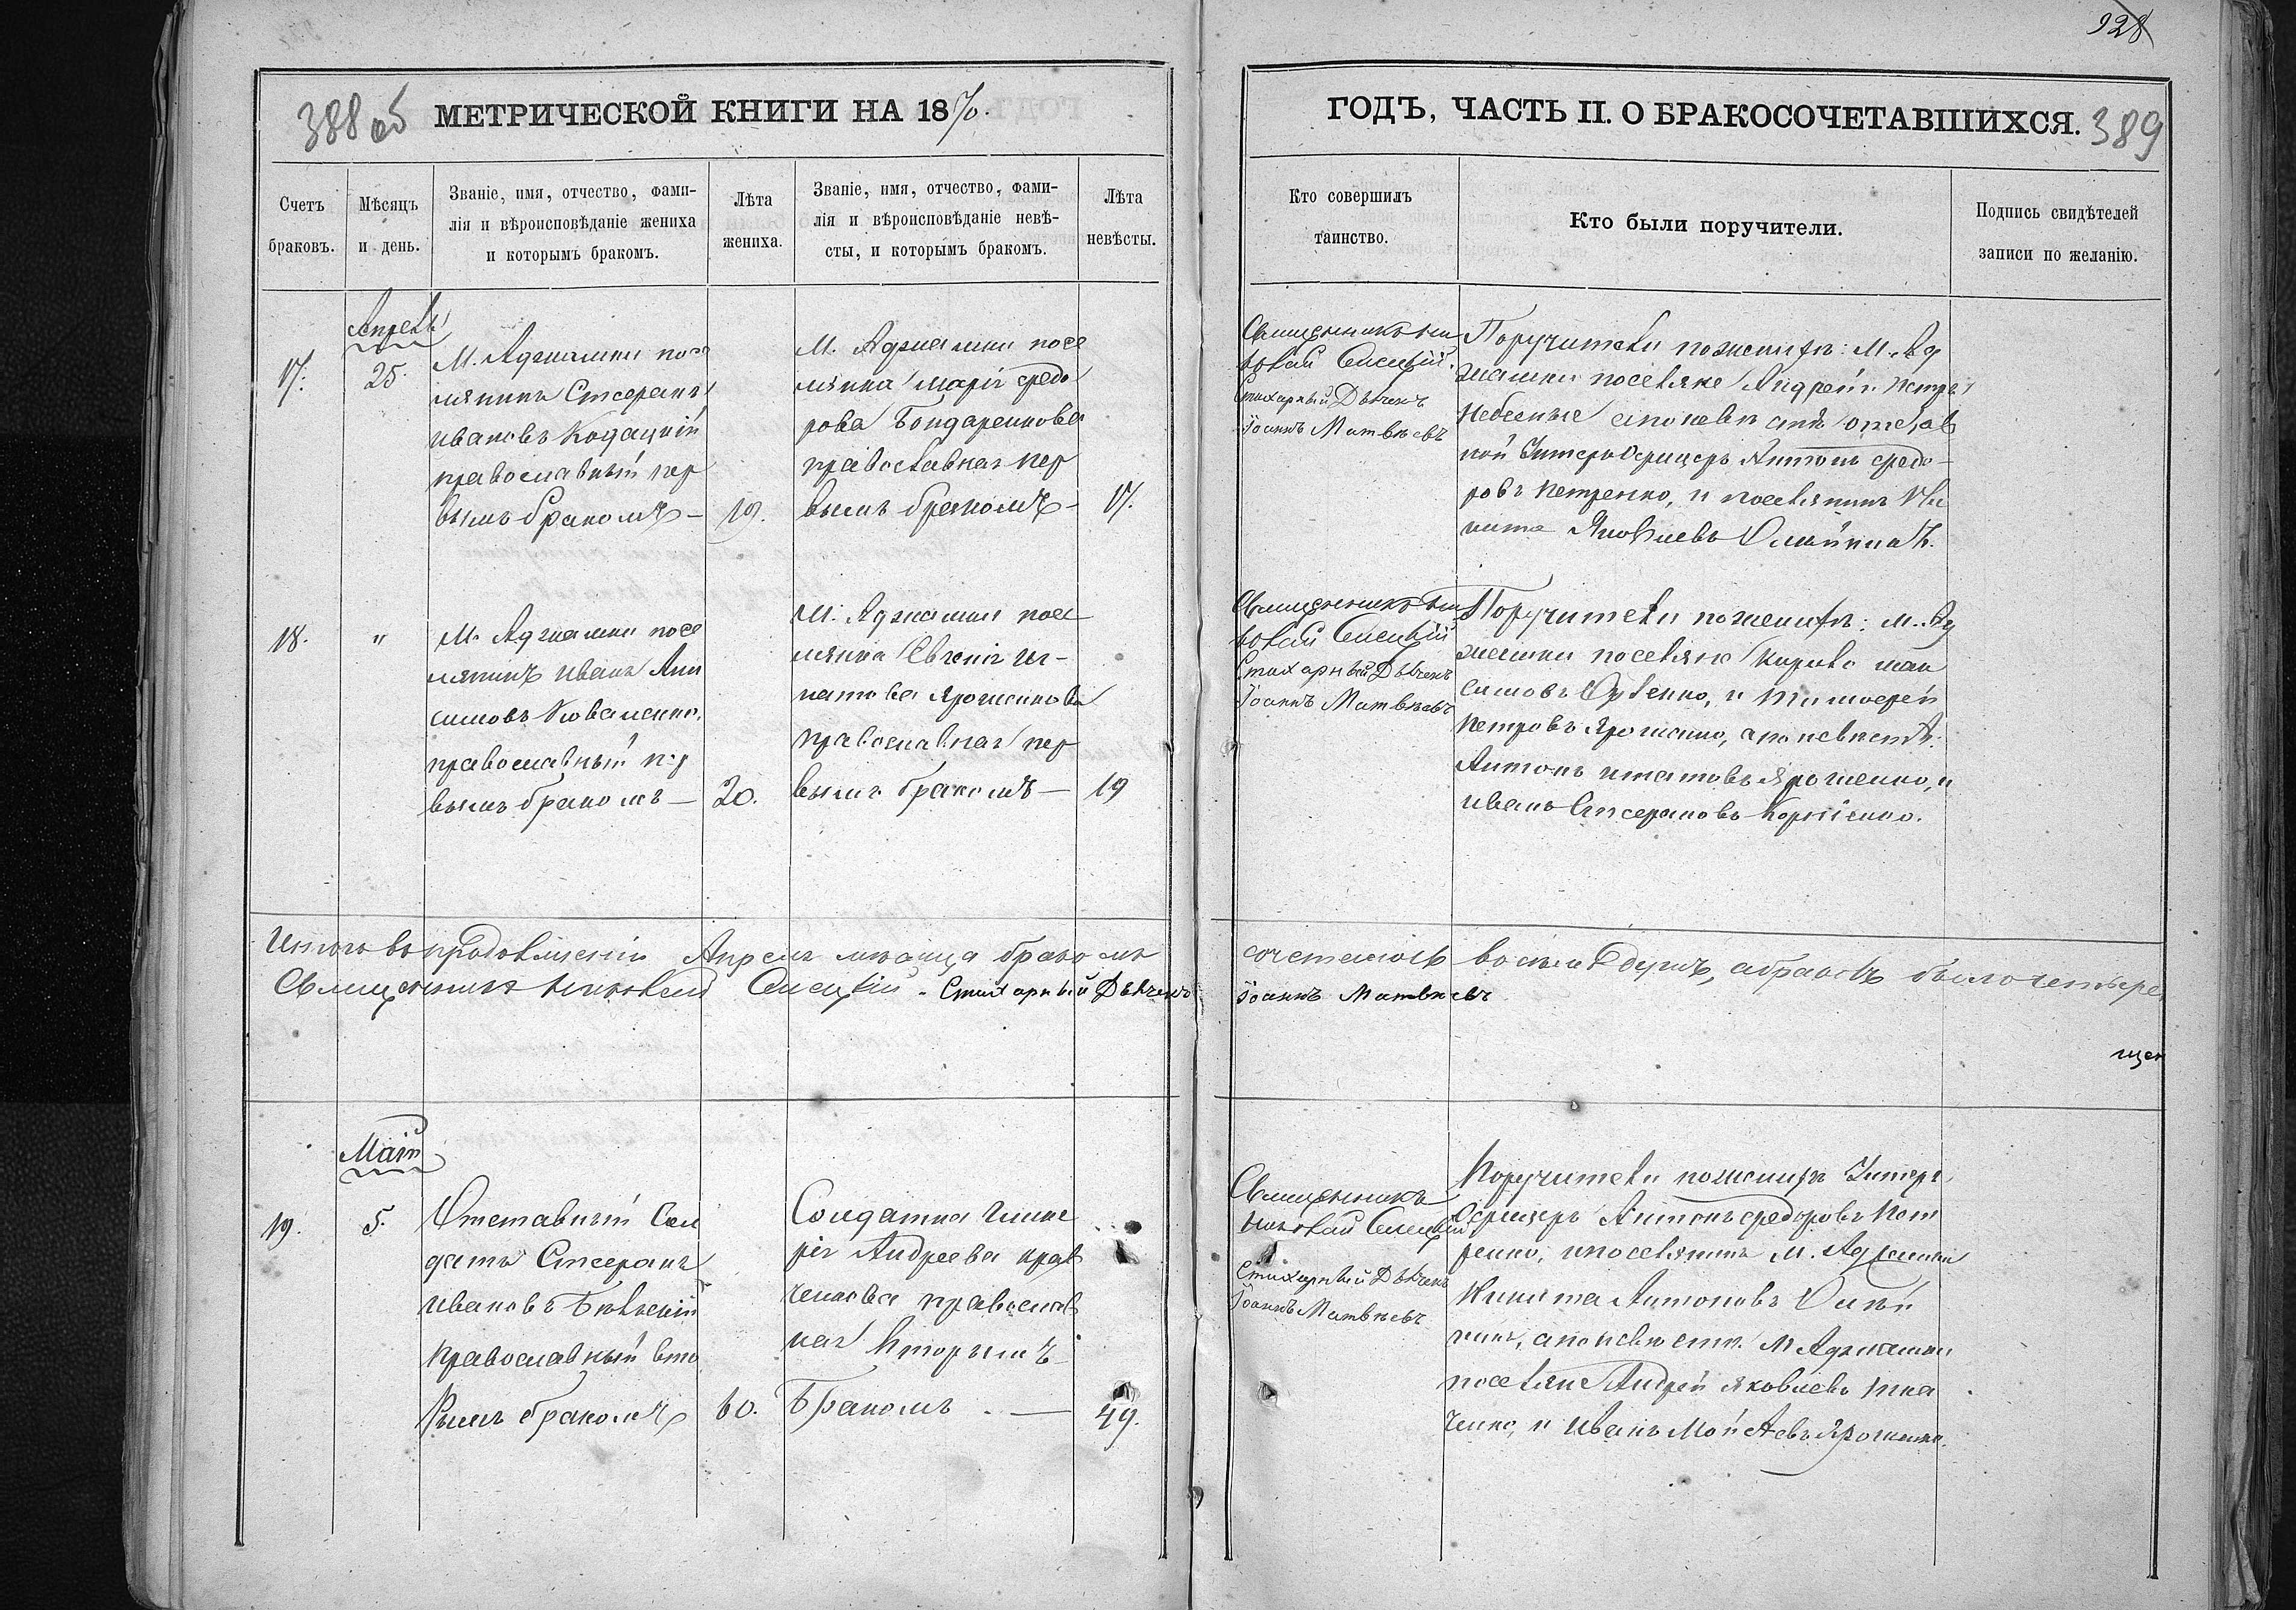 928
388 об
МЕТРИЧЕСКОЙ КНИГИ НА 1870.
ГОДЪ, ЧАСТЬ II. О БРАКОСОЧЕТАВШИХСЯ.
389
Счетъ
браковъ.
Мѣсяцъ
и день.
Званіе, имя, отчество, фами-
лія и вѣроисповѣданіе жениха
и которымъ бракомъ.
Лѣта
жениха.
Званіе, имя, отчество, фами-
лія и вѣроисповѣданіе невѣ-
сты, и которымъ бракомъ.
Лѣта
невѣсты.
Кто совершилъ
таинство.
Кто были поручители.
Подпись свидѣтелей
записи по желанію.
17.
Апрель
25.
М. Аджамки посе
лянинъ Стефанъ
Ивановъ Кодацкій
православный пер
вымъ бракомъ —
19.
М. Аджамки посе
лянка Марія Федо
рова Бондаренкова
православная пер
вымъ бракомъ —
17.
Священникъ Ни
колай Сисецкій
Стихарный Дьячекъ
Іоаннъ Матвѣевъ
Поручители по женихѣ: М. Ад
жамки поселяне Андрей Петръ
Небесные а по невѣстѣ отстав
ной Унтеръ Офицеръ Антонъ Федо-
ровъ Петренко, и поселянинъ Ни
кита Яковлевъ Олѣйникъ.
18.
"
М. Аджамки посе
лянинъ Иванъ Ани
симовъ Коваленко,
православный пер
вымъ бракомъ —
20.
М. Аджамки посе
лянка Евгенія Иг-
натова Ярошенкова
православная пер
вымъ бракомъ —
19
Священникъ Ни
колай Сисецкій
Стихарный Дьячекъ
Іоаннъ Матвѣевъ
Поручители по женихѣ: М. Ад
жамки поселяне Кирило Мак
симовъ и Тимофей
Петровъ Ярошенко, а по невѣстѣ:
Антонъ Игнатовъ Ярошенко, и
Иванъ Стефановъ Корніенко.
Итого въ продолженіи Апреля мѣсяца бракомъ
сочеталось восемь душъ, а браковъ было четыре
Священникъ Николай Сисецкій. Стихарный Дьячекъ
Іоаннъ Матвѣевъ
щен
19.
Маій
5.
Отставный Сол
датъ Стефанъ
Ивановъ
православный вто
рымъ бракомъ
60.
Солдатка Глике
рія Андреева Крав
ченкова православ
ная вторымъ
бракомъ. —
49.
Священникъ
Николай Сисецкій
Стихарный Дьячекъ
Іоаннъ Матвѣевъ
Поручители по женихѣ Унтеръ
Офицеръ Антонъ Федоровъ Пет
ренко, и поселянинъ М. Аджамки
Никита Антоновъ Олѣй
никъ, а по невѣстѣ М. Аджамки
поселяне Андрей Яковлевъ Тка
ченко, и Иванъ Ярошенко.